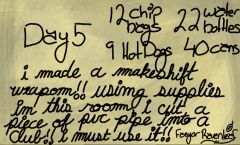 Day 5
12 chip bags
22 water bottles
9 Hot Dogs
40 cans
i made a makeshift
weapom!! using supplies
im this room i cut a
piece of pvc pipe into a
club!! i must use it!!